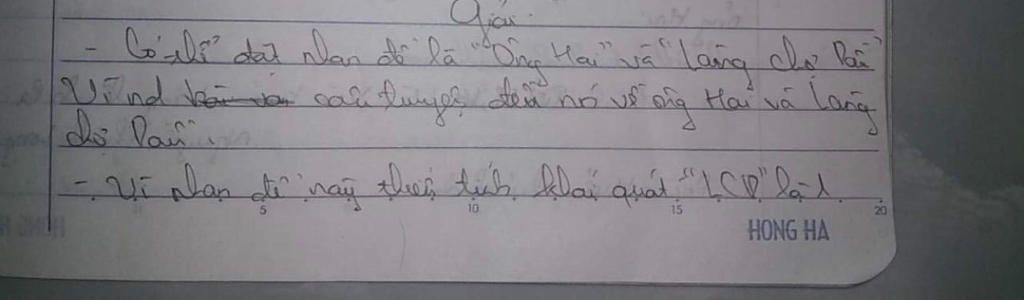 Giải
- Có thể đặt nhan đề là "Ông Hai" và "làng chợ Dầu"
Vì nd câu truyện đều nó về ông Hai và làng
chợ Dầu
- Vì nhan đề này thiếu tính khái quát "LCD" là 1
5 10 15 20
HONG HA